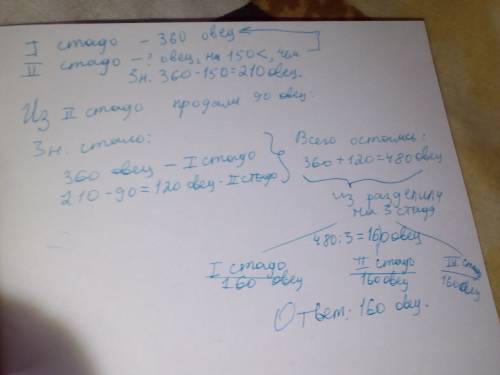 I стадо – 360 овец
II стадо – ? овец, на 150 <, чем
Зн. 360-150=210 овец.
Из II стадо продали 90 овец.
Зн. стало:
360 овец – I стадо
210-90=120 овец - II стадо
Всего осталось:
360+120=480 овец
из разделили
на 3 стада
480:3=160 овец
I стадо
160 овец
II стадо
160 овец
III стадо
160 овец
Ответ: 160 овец.